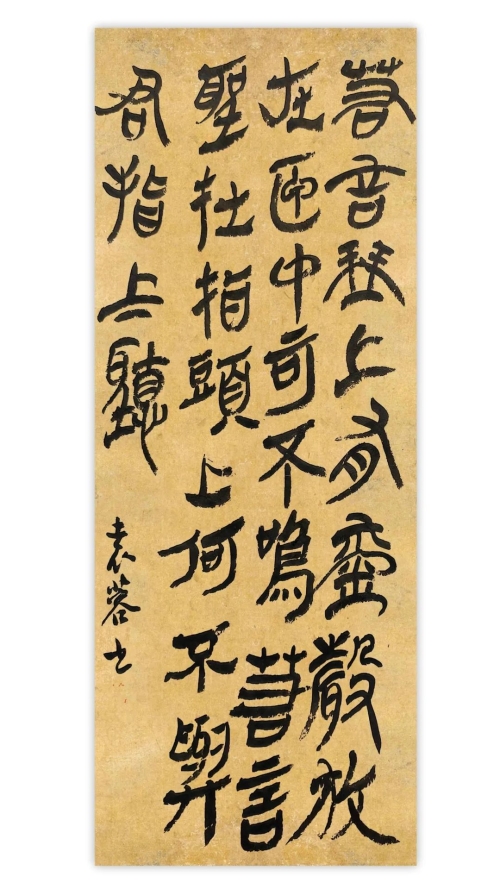 若言琴上有琴聲放
在匣中可不鳴若言
聲在指頭上何不與
君指上聽
袁蓉书